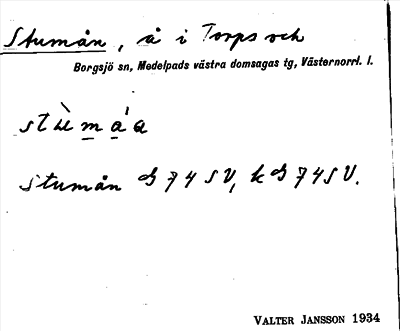 Stumån, å i Torps och
Borgsjö sn, Medelpads västra domsagas tg, Västernorrl. l.
stùmáa
Stumån G 74 SV, kG 74 SV.
VALTER JANSSON 1934